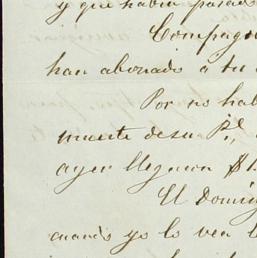 y que habia pasado
Compañ
han abonado á tu
Por no hab
muerte de su P.e
ayer llegaron $1
El Doming
cuando yo lo vea l